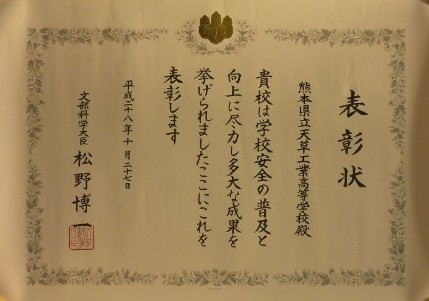 表彰状
熊本県立天草工業高等学校殿
貴校は学校安全の普及と
向上に尽力し多大な成果を
挙げられましたここにこれを
表彰します
平成二十八年十月二十七日
文部科学大臣 松野博一